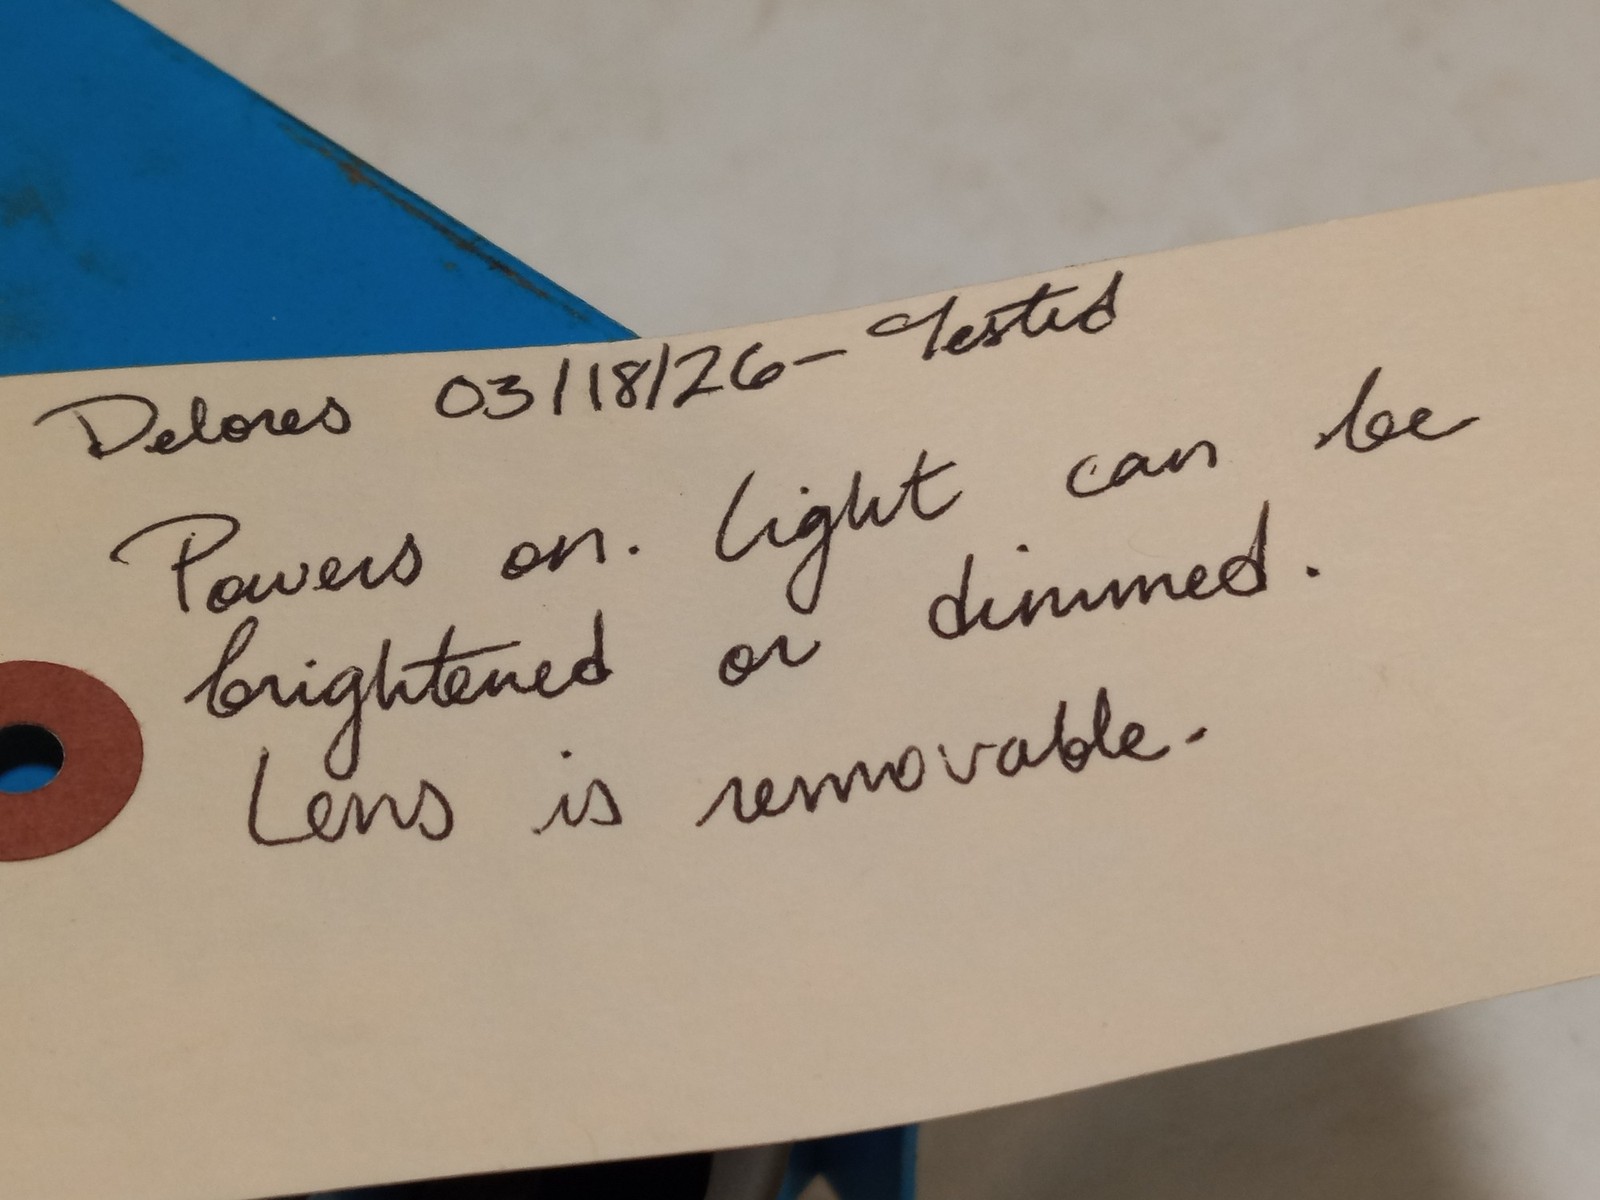 Delores 03/18/26- Tested
Powers on. Light can be
brightened or dimmed.
Lens is removable.